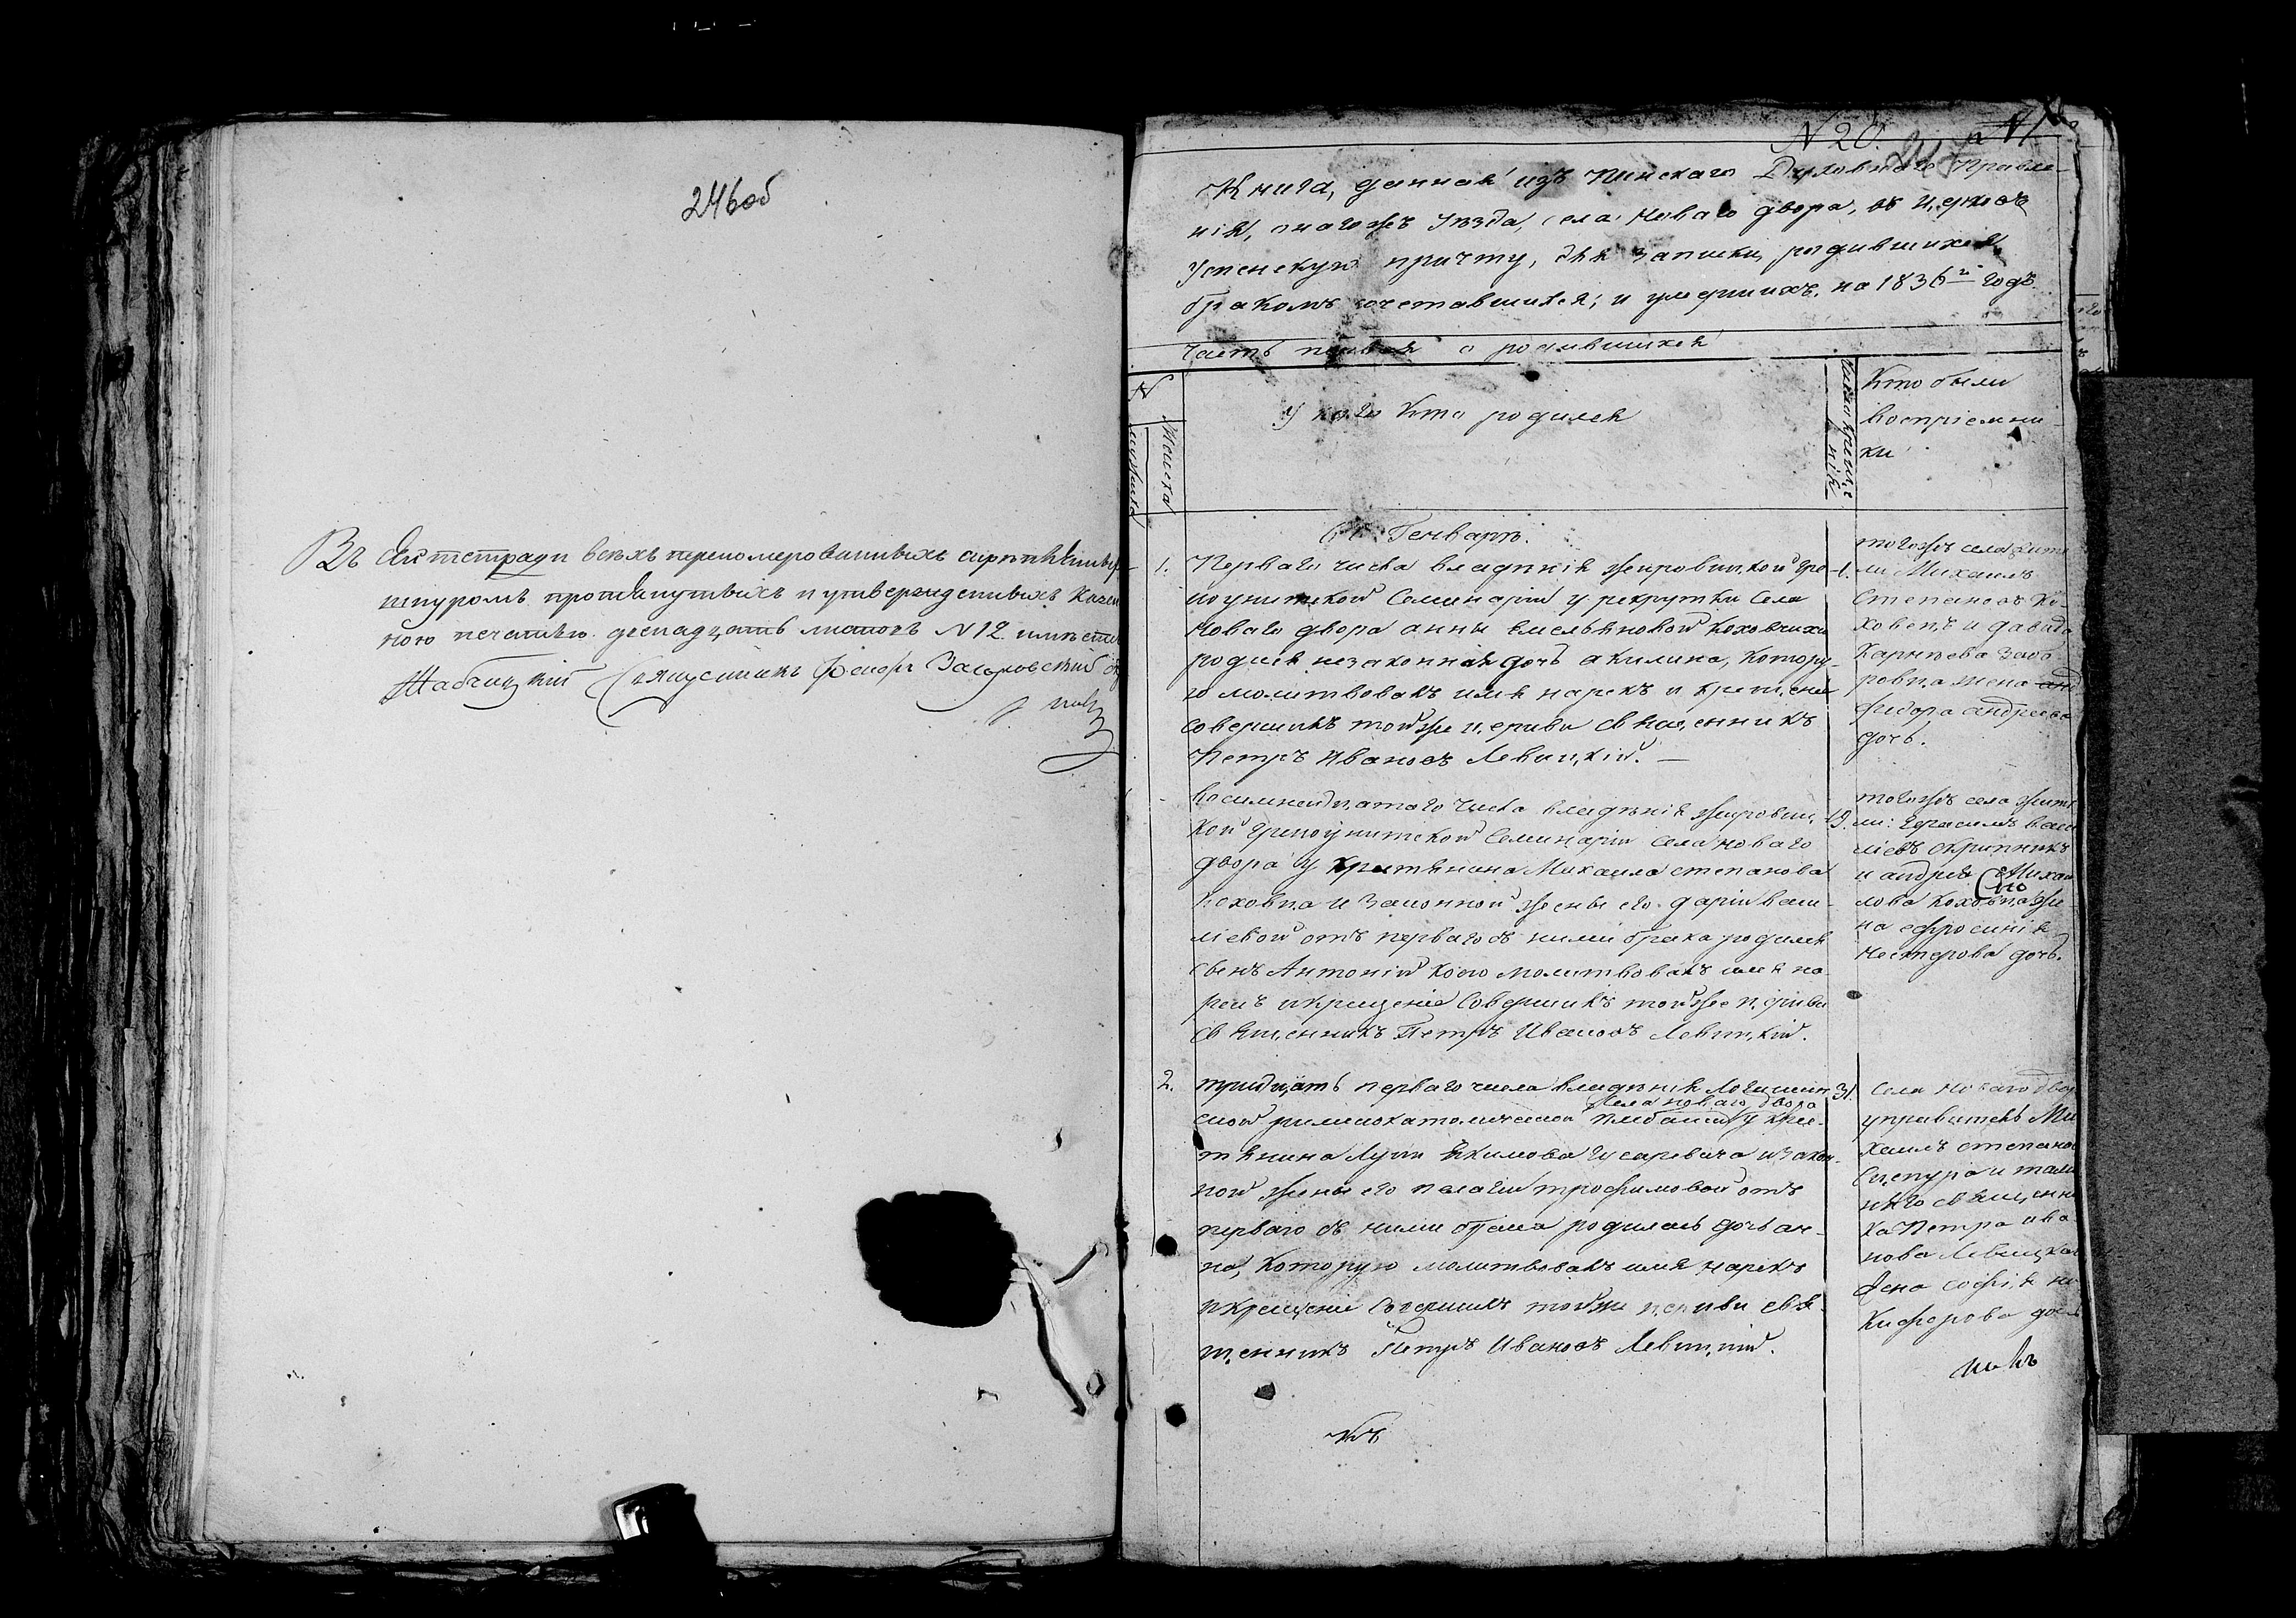 246об
Въ сей тетради всѣхъ перенумерованныхъ
шнуромъ протянутыхъ и утвержденныхъ казен
ною печатью двенадцать листовъ N 12.
Священникъ
N 20.
Книга, данная изъ Пинскаго Духовнаго Правле-
нія, тагожъ уѣзда, села Новаго двора, въ церковь
Успенскую причту, для записки родившихся
бракомъ сочетавшихся, и умершихъ, на 1836й годъ
Часть первая о родившихся
N
мужеска
женска
У кого кто родился
Число крещенія
Кто были
воспріемни-
ки
Генварь.
1. Перваго числа владѣнія Жировицкой гре-
коунитской Семинаріи у рекрутки села
Новаго двора анны Емельяновой Коховчихи
родися незаконная дочь акилина, котору-
ю молитвовалъ имя нарекъ и крещеніе
совершилъ тойже церкви священникъ
Петръ Ивановъ Левицкій.
1. тогожъ села жите
ли Михаилъ
Степановъ Ко-
ховецъ и давида
Карнѣева
жена
федора андреева
дочь.
восимнадцатаго числа владѣнія Жировиц-
кой грекоунитской Семинаріи села новаго
двора у крестьянина Михаила степанова
Коховца и законной жены его даріи васи-
ліевой отъ перваго съ ними брака родился
сынъ Антоній коего молитвовалъ имя на-
рекъ и крещеніе совершилъ тойже церкви
священникъ Петръ Ивановъ Левицкій.
19. тогожъ села жите
ли: герасимъ васи
ліевъ скрипникъ
и андрея Михаи
лова Коховца же
на ефросинія
нестерова дочь.
2. тридцать перваго числа владѣнія Логишин
села новаго двора
ской римскокатолической плебаніи у кре-
стьянина Луки Якимова Гусаревича и закон-
ной жены его пелагіи трофимовой отъ
перваго съ ними брака родилась дочь ан-
на, которую молитвовалъ имя нарекъ
и крещеніе совершилъ тойже церкви свя-
щенникъ Петръ Ивановъ Левицкій.
31. села новаго двора
управитель Ми
хаилъ степанов
Сцепура и тамо
шняго священни
ка Петра ива-
нова Левицкаго
жена софія ни
кифорова дочь